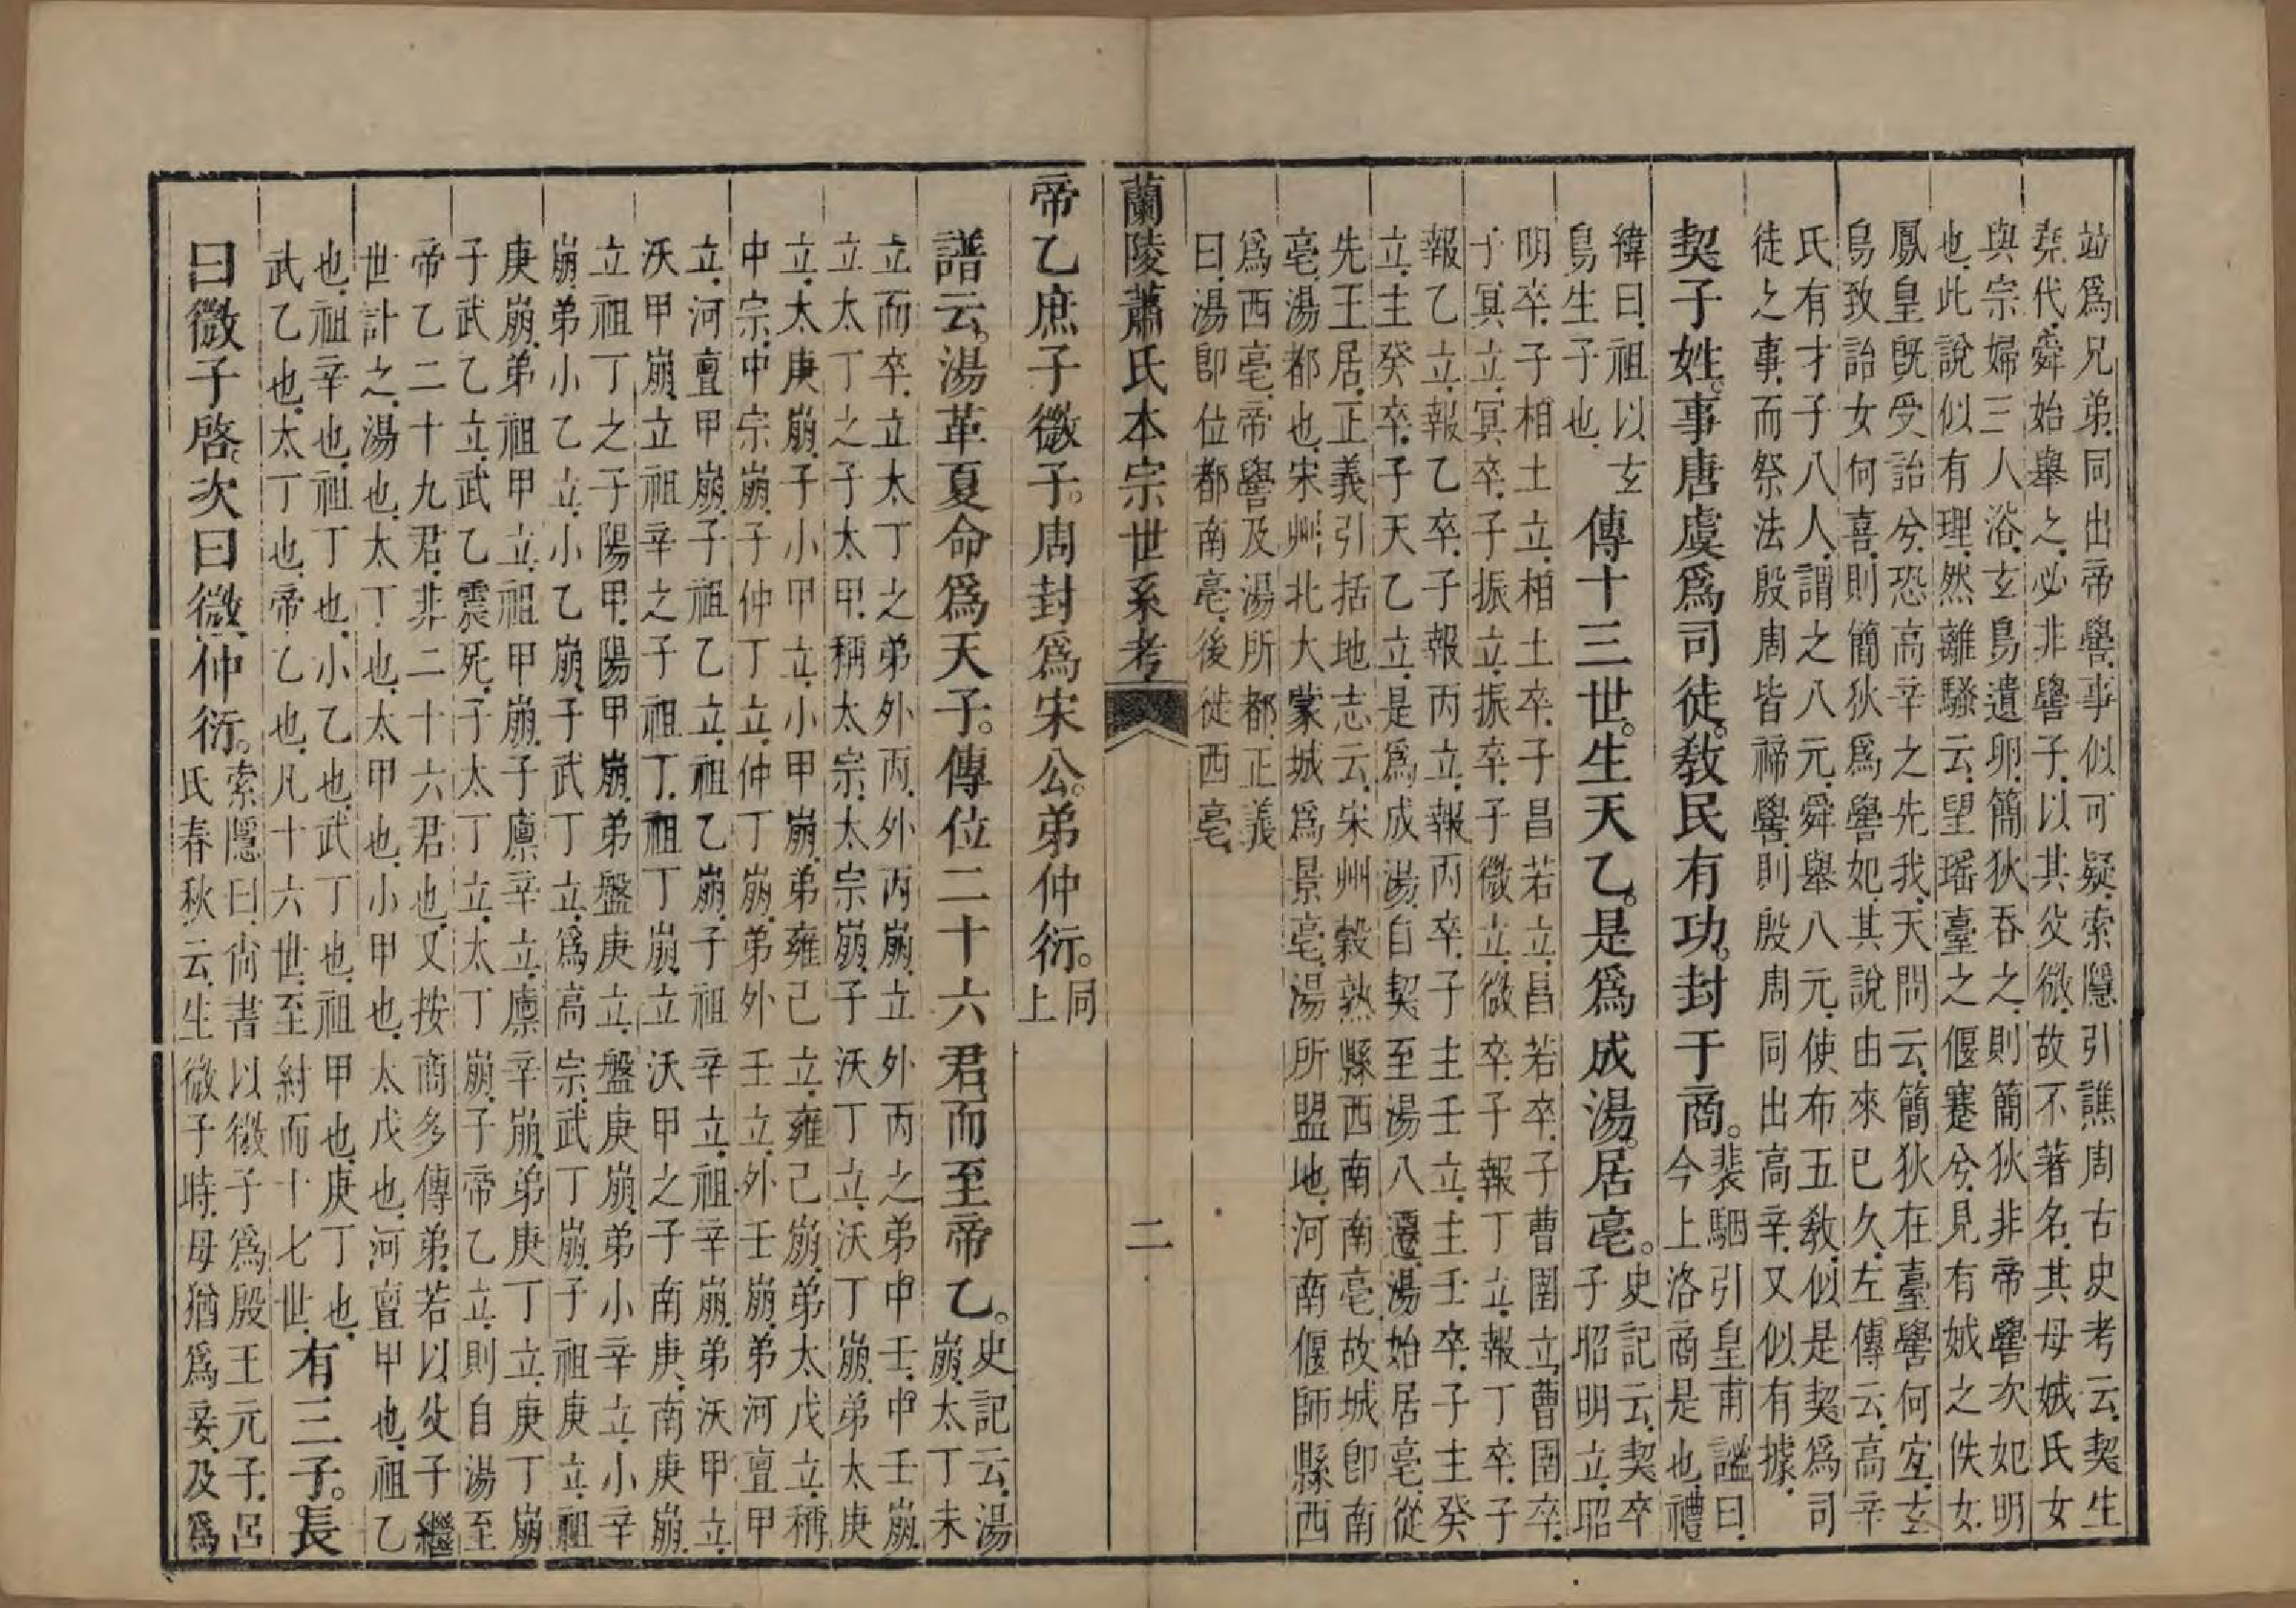 竝爲兄弟同出帝嚳事似可疑索隱引譙周古史考云契生
堯代舜始舉之必非嚳子以其父微故不著名其母娀氏女
與宗婦三人浴玄鳥遺卵簡狄吞之則簡狄非帝嚳次妃明
也此說似有理然離騷云望瑤臺之偃蹇兮見有娀之佚女
鳳皇旣受詒兮恐高辛之先我天問云簡狄在臺嚳何宜玄
鳥致詒女何喜則簡狄爲嚳妃其說由來已久左傳云高辛
氏有才子八人謂之八元舜舉八元使布五敎似是契爲司
徒之事而祭法殷周皆禘嚳則殷周同出高辛又似有據
契子姓事唐虞爲司徒敎民有功封于商。
裴駰引皇甫謐曰
今上洛商是也禮
緯曰祖以玄
鳥生子也
傳十三世生天乙是爲成湯居亳。
史記云契卒
子昭明立昭
明卒子相土立相土卒子昌若立昌若卒子曹圉立曹圉卒
子冥立冥卒子振立振卒子微立微卒子報丁立報丁卒子
報乙立報乙卒子報丙立報丙卒子主壬立主壬卒子主癸
立主癸卒子天乙立是爲成湯自契至湯八遷湯始居亳從
先王居正義引括地志云宋州穀熟縣西南南亳故城卽南
亳湯都也宋州北大蒙城爲景亳湯所盟地河南偃師縣西
爲西亳帝嚳及湯所都正義
曰湯卽位都南亳後徙西亳
蘭陵蕭氏本宗世系考
二
帝乙庶子微子。周封爲宋公。弟仲衍。
同
上
譜云。湯革夏命爲天子。傳位二十六君而至帝乙。
史記云湯
崩太丁未
立而卒立太丁之弟外丙外丙崩立外丙之弟中壬中壬崩
立太丁之子太甲稱太宗太宗崩子沃丁立沃丁崩弟太庚
立太庚崩子小甲立小甲崩弟雍己立雍己崩弟太戊立稱
中宗中宗崩子仲丁立仲丁崩弟外壬立外壬崩弟河亶甲
立河亶甲崩子祖乙立祖乙崩子祖辛立祖辛崩弟沃甲立
沃甲崩立祖辛之子祖丁祖丁崩立沃甲之子南庚南庚崩
立祖丁之子陽甲陽甲崩弟盤庚立盤庚崩弟小辛立小辛
崩弟小乙立小乙崩子武丁立爲高宗武丁崩子祖庚立祖
庚崩弟祖甲立祖甲崩子廩辛立廩辛崩弟庚丁立庚丁崩
子武乙立武乙震死子太丁立太丁崩子帝乙立則自湯至
帝乙二十九君非二十六君也又按商多傳弟若以父子繼
世計之湯也太丁也太甲也小甲也太戊也河亶甲也祖乙
也祖辛也祖丁也小乙也武丁也祖甲也庚丁也
武乙也太丁也帝乙也凡十六世至紂而十七世
有三子。長
曰微子啓次曰微仲衍。
索隱曰尙書以微子爲殷王元子呂
氏春秋云生微子時母猶爲妾及爲